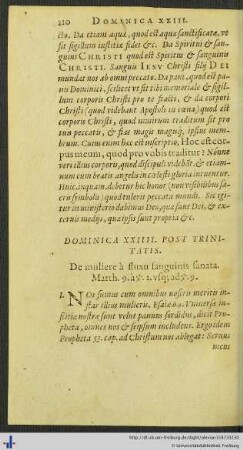 210 DOMINICA XXIII.
cto. Da etiam aquã, quod est aqua sanctificata, vt
sit sigillum iustitiæ fidei &c. Da Spiritũ & san-
guinẽ CHRISTI quod est Spiritus & sanguinis
CHRISTI. Sanguis IESV Christi filij DEI
mundat nos ab omni peccato. Da pani, quod est panis
Dominici. scilicet vt sit tibi memoriale & sigil-
lum corporis Christi pro te fracti, & da corpori
Christi (quod videbant Apostoli in cœna) quod est
corporis Christi, quod videlicet traditum sit pro
tuis peccatis, & fias magis magisq; ipsius mem-
brum. Cuius enim hæc est inscriptio, Hoc est cor-
pus meum, quod pro vobis traditur? Nonne
veri illius corporis, quod discipuli videbãt, & etiam-
num cum beatis angelis in cœlesti gloria intuentur.
Huic, inquam, debetur hic honor (non visibilibus sa-
cris symbolis) quod tulerit peccata mundi. Sic igi-
tur in ministerio dabimus Deo, quæ sunt Dei, & ex-
ternis medijs, quæ ipsis sunt propria &c.
DOMINICA XXIIII. POST TRINI-
TATIS.
De muliere à fluxu sanguinis sanata.
Matth. 9. à v. 1. vsq; ad v. 9.
I. NOs sumus cum omnibus nostris meritis in-
star illius mulieris. Esaiæ 64. Vniuersa iu-
stitia nostra sunt velut pannus sordidus, dicit Pro-
pheta, omnes nos & seipsum includens. Ergo idem
Propheta 53. cap. ad Christum nos ablegat: Seruus
meus